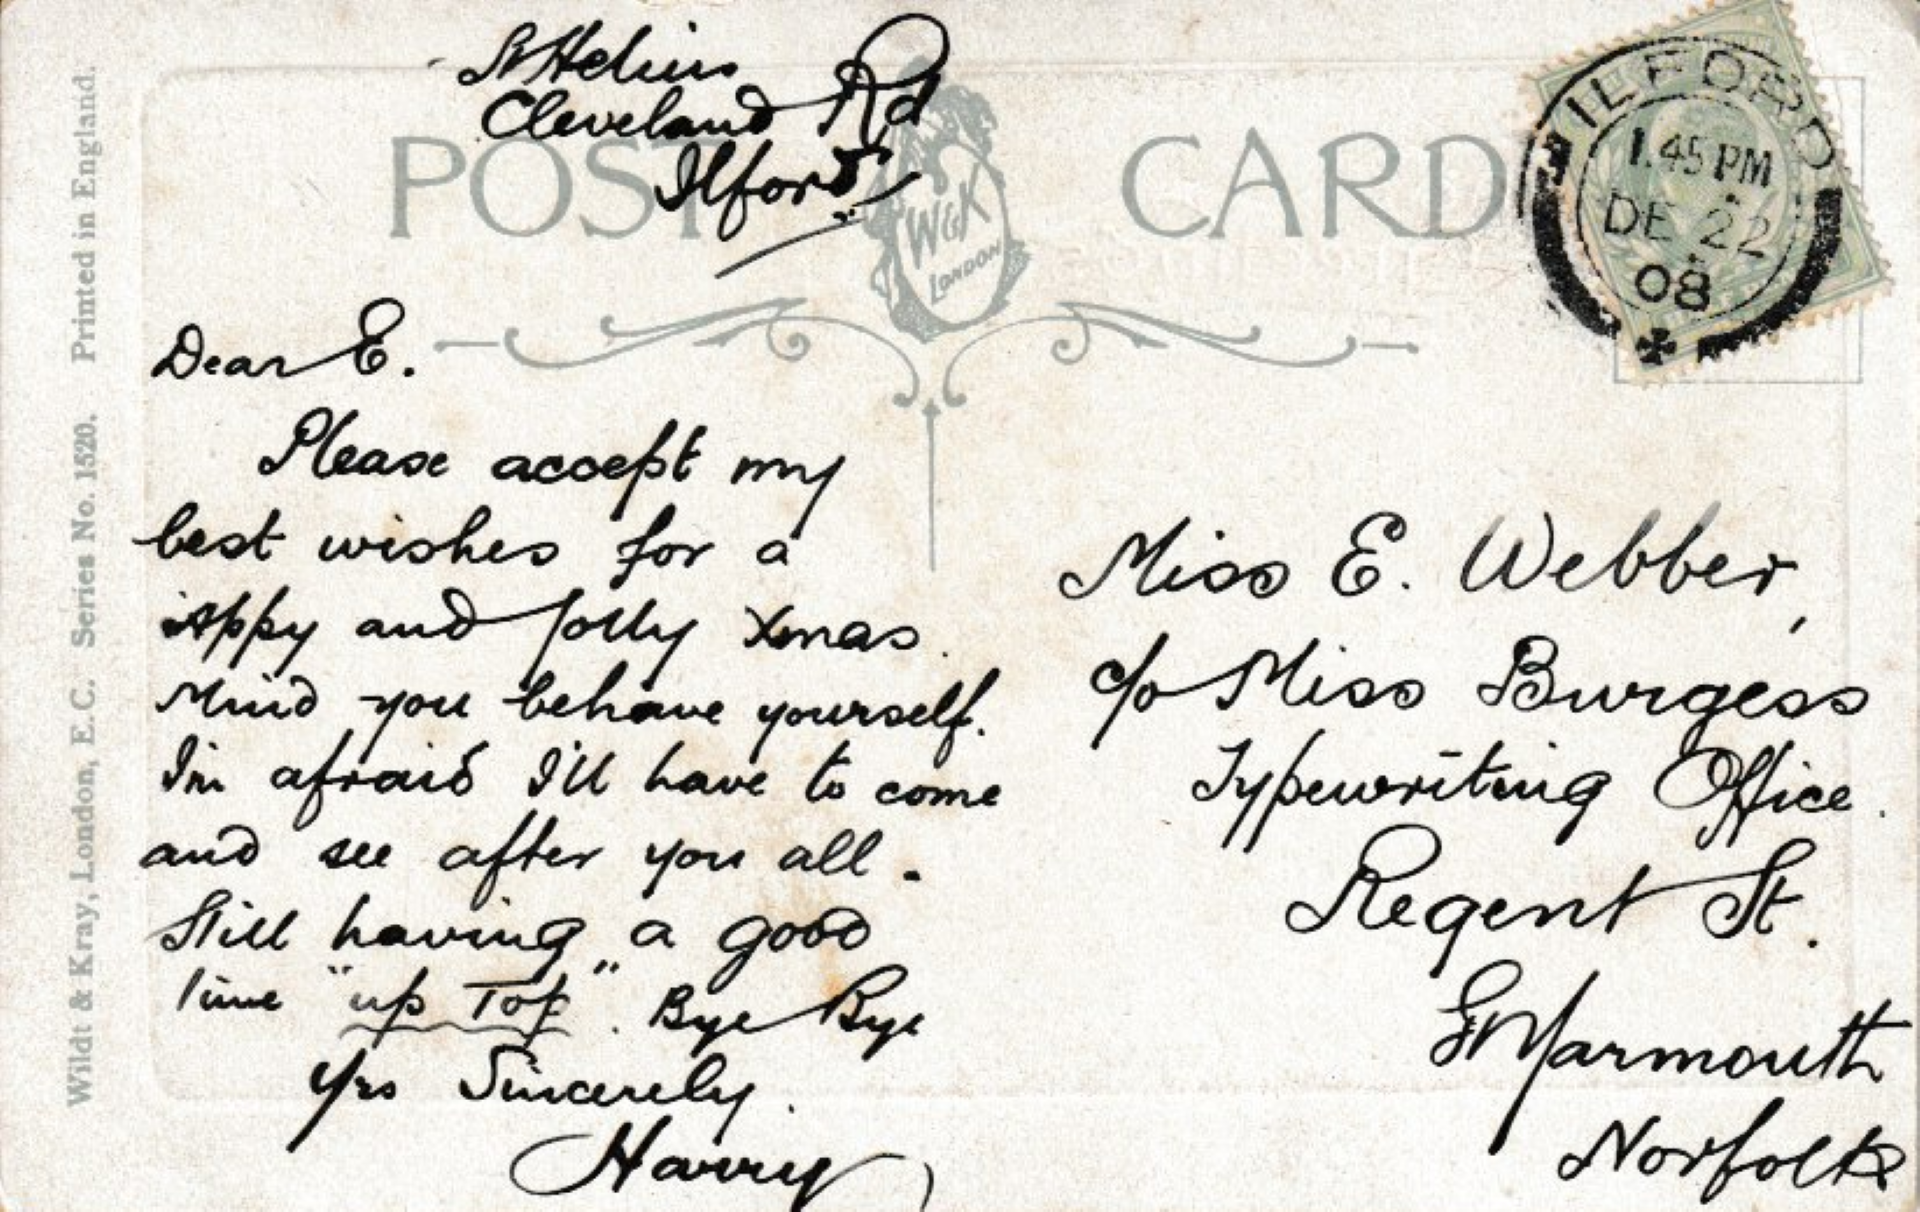 St Helens
Cleveland Rd
Ilford
POST CARD
W & K
LONDON
ILFORD
1.45 PM
DE 22
08
Dear E.
Please accept my
best wishes for a
'Appy and Jolly Xmas.
Mind you behave yourself.
I'm afraid I'll have to come
and see after you all.
Still having a good
time "up Top". Bye Bye
Yrs Sincerely.
Harry
Miss E. Webber,
c/o Miss Burgess
Typewriting Office.
Regent St.
Gt Yarmouth
Norfolk
Wildt & Kray, London, E.C. Series No. 1520. Printed in England.